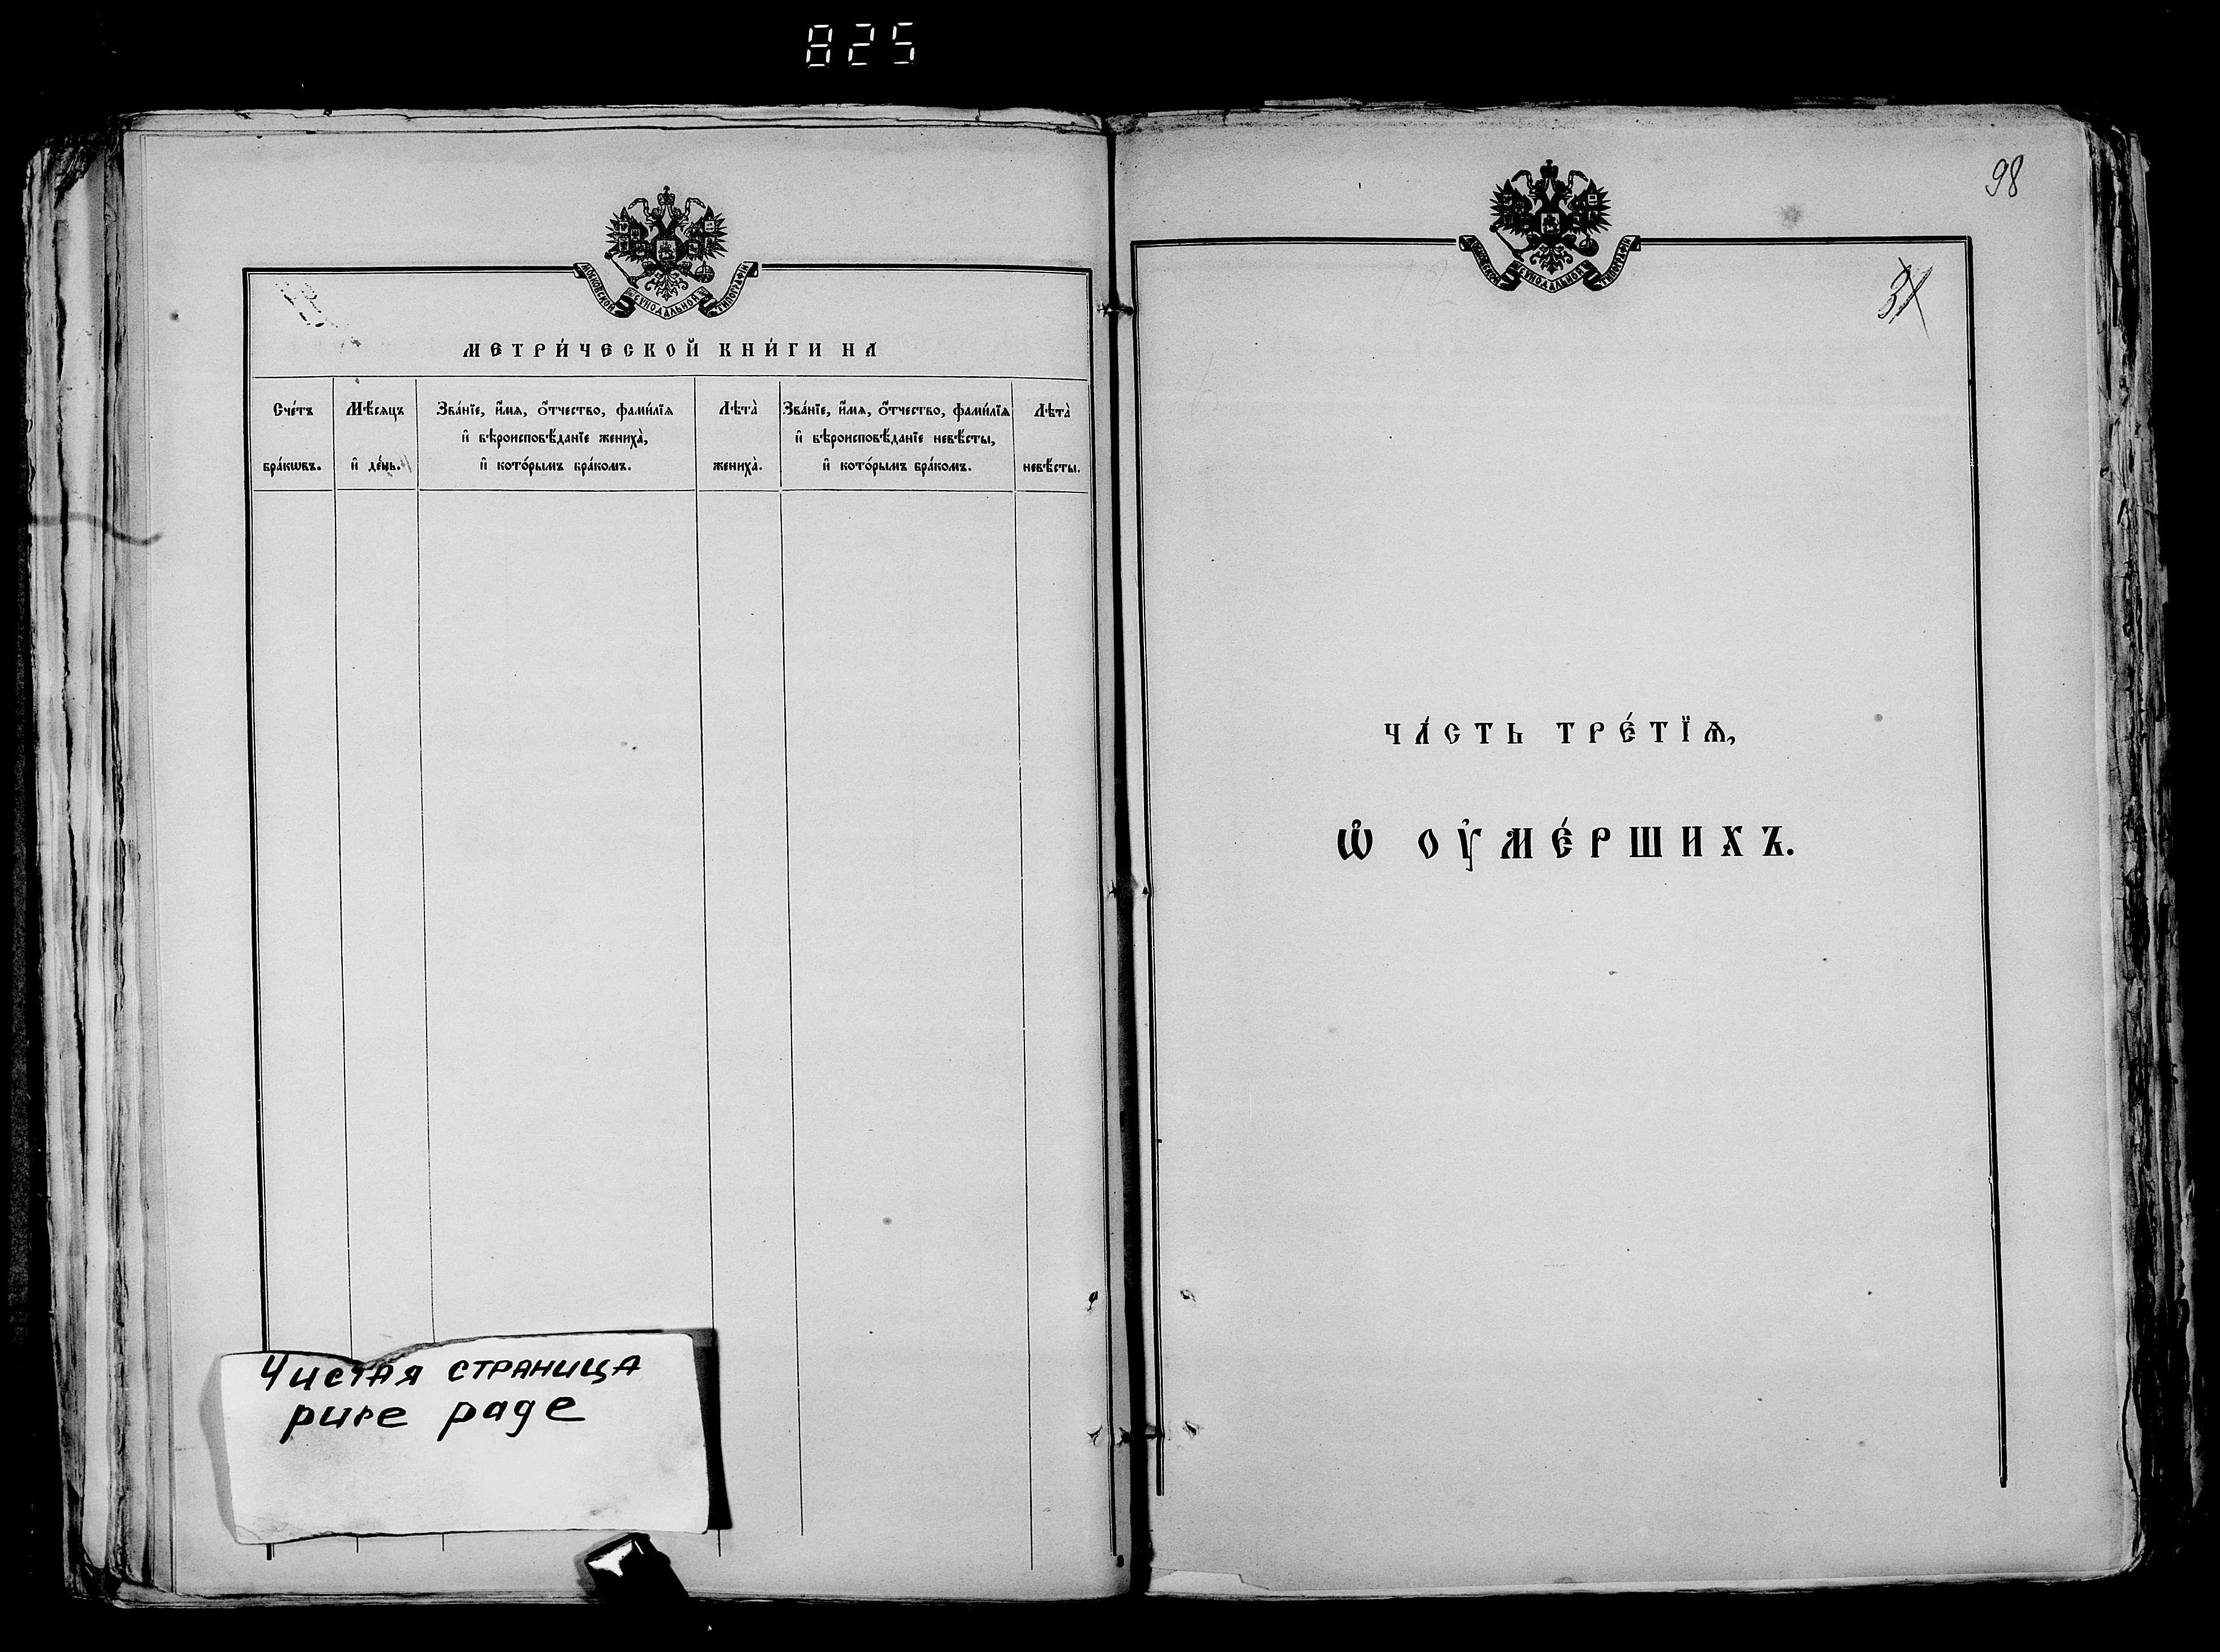 825
МОСКОВСКОЙ СѴНОДАЛЬНОЙ ТИПОГРАФІИ
МЕТРИ́ЧЕСКОЙ КНИ́ГИ НА
Сче́тъ бра́кѡвъ.
Мѣ́сяцъ и҆ де́нь.
Зва́нїе, и҆́мѧ, ѻ҆́тчество, фами́лїѧ
и҆ вѣроисповѣ́данїе жениха̀,
и҆ кото́рымъ бра́комъ.
Лѣта̀ жениха̀.
Зва́нїе, и҆́мѧ, ѻ҆́тчество, фами́лїѧ
и҆ вѣроисповѣ́данїе невѣ́сты,
и҆ кото́рымъ бра́комъ.
Лѣта̀ невѣ́сты.
Чистая страница
pure page
98
МОСКОВСКОЙ СѴНОДАЛЬНОЙ ТИПОГРАФІИ
ЧА́СТЬ ТРЕ́ТЇѦ,
Ѡ҆ ОУ҆МЕ́РШИХЪ.